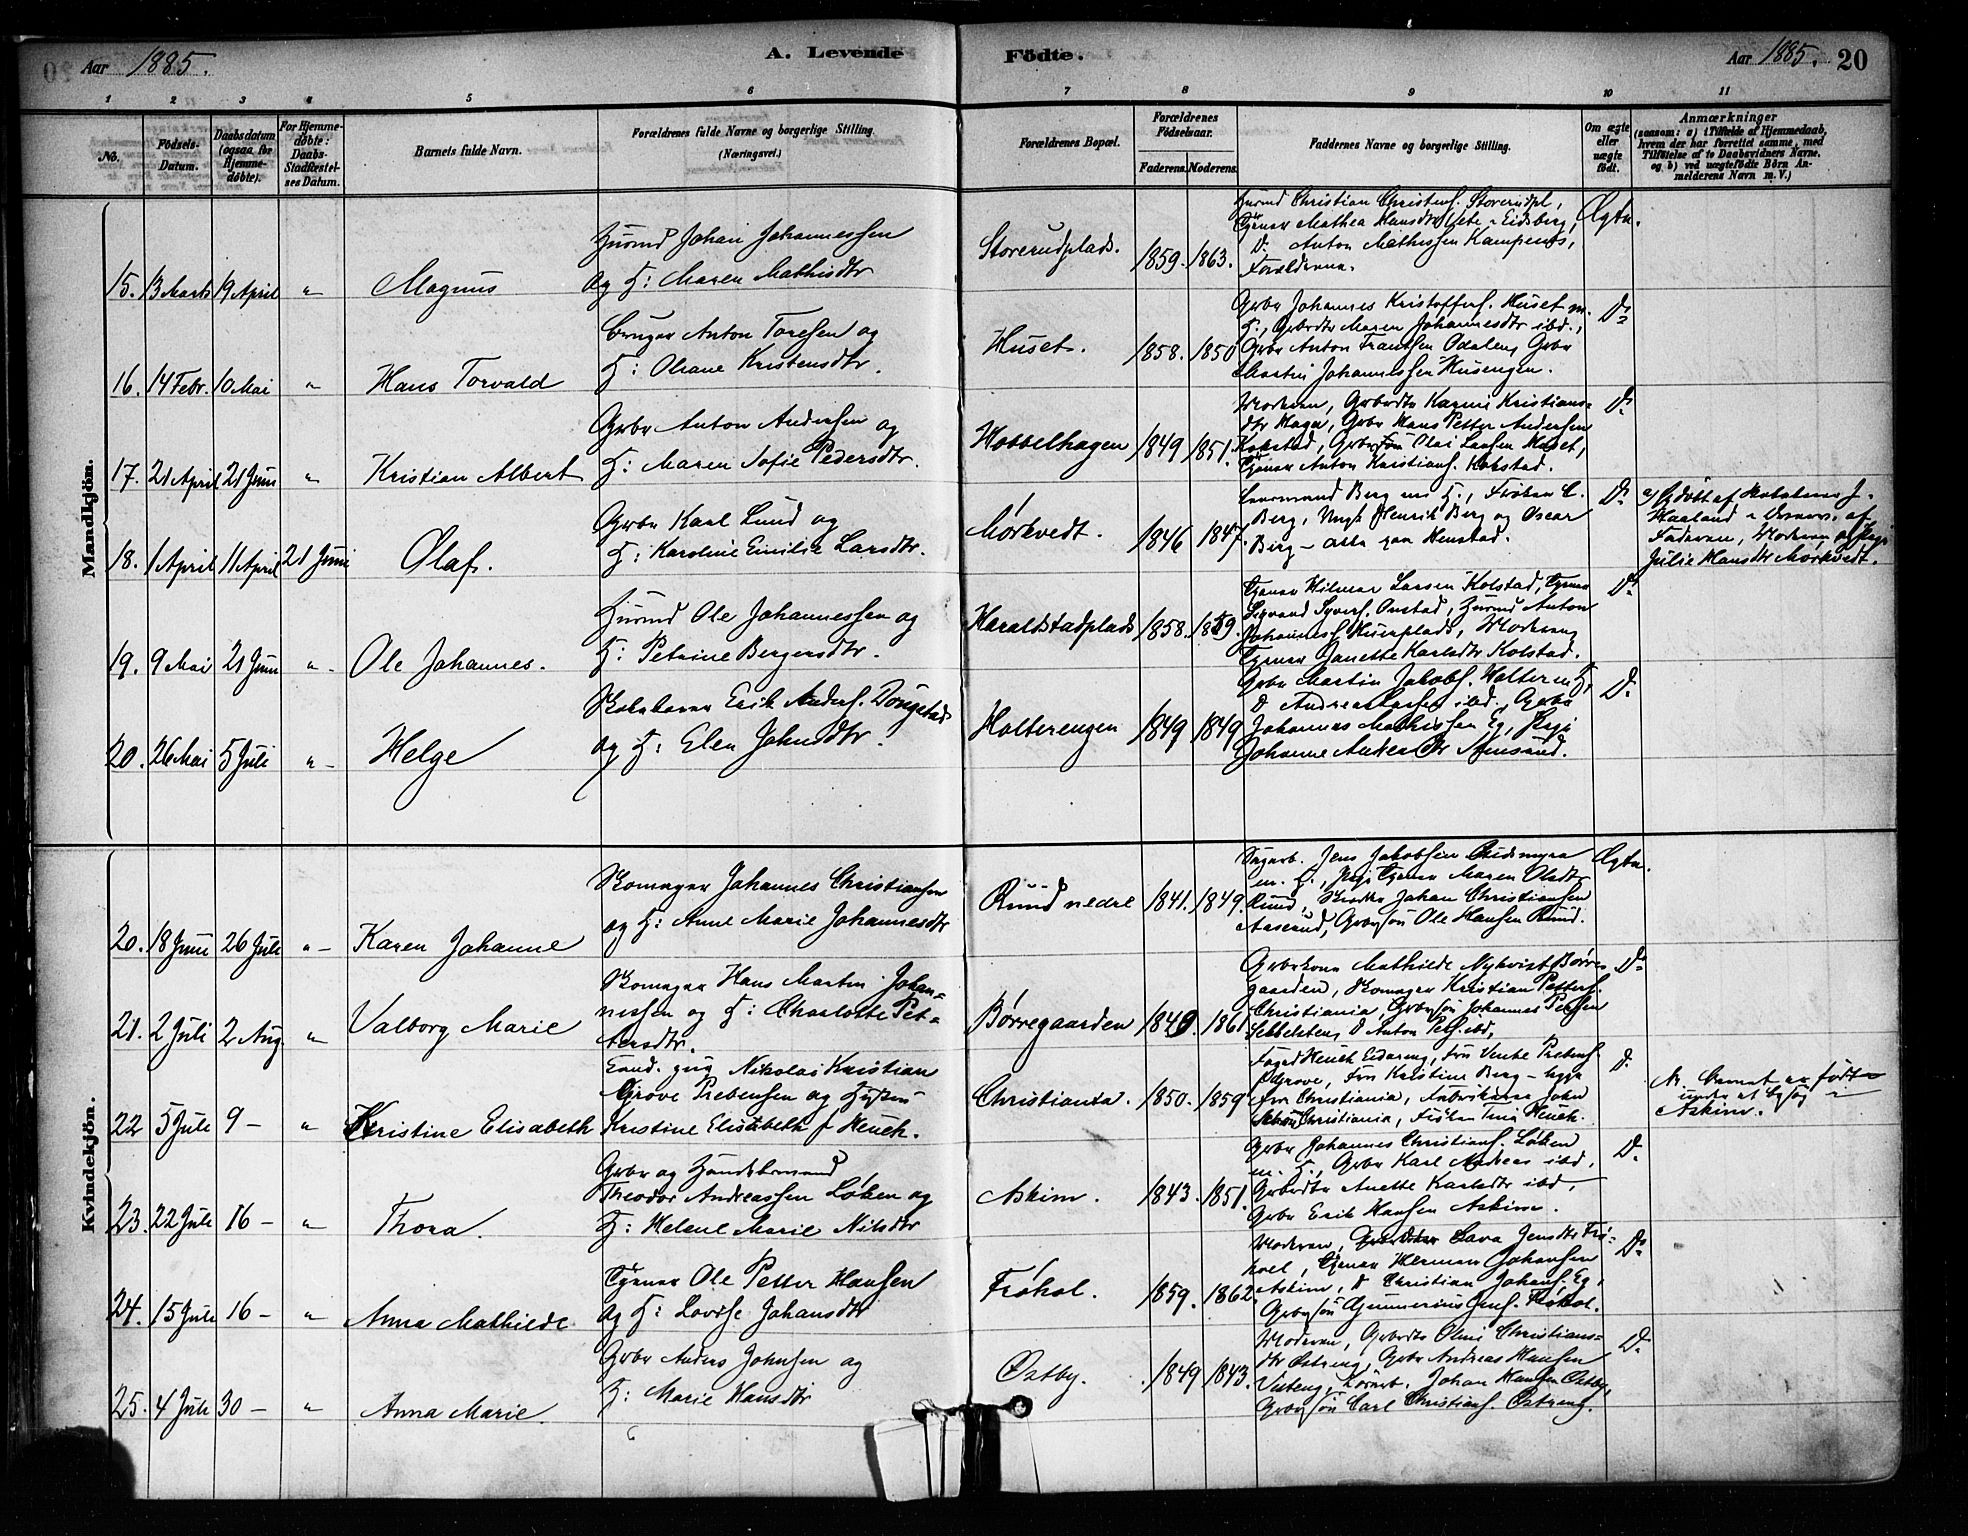 Aar 1885.
A. Levende
Födte.
Aar 1885. 20
1 2 3 4 5 6 7 8 9 10 11
No.
Födsels-
Datum.
Daabsdatum
(ogsaa for
Hjemme-
døbte).
For Hjemme-
døbte:
Daabs-
Stadfæstel-
ses Datum.
Barnets fulde Navn.
Forældrenes fulde Navne og borgerlige Stilling.
(Næringsvei.)
Forældrenes Bopæl.
Forældrenes
Födselsaar.
Faderens. Moderens.
Faddernes Navne og borgerlige Stilling.
Om ægte
eller
uægte
født.
Anmærkninger
(saasom: a) i Tilfælde af Hjemmedaab,
hvem der har forrettet samme, med
Tilföielse af to Daabsvidners Navne.
og b) ved uægtefödte Börn An-
melderens Navn m. V.)
Mandkjön.
15. 13 Marts 19 April " Magnus
Husmd Johan Johannessen
og H: Maren Mathisdtr
Storerudplads. 1859. 1863.
Husmd Christian Christens. Storerudpl,
Tjener Mathea Hansdtr i Eidsberg,
Do Anton Mathissen Kampenes,
Forældrene.
Ægte.
16. 14 Febr. 10 Mai " Hans Torvald
Bruger Anton Toresen og
H: Oliane Kristensdtr.
Huset. 1858. 1850
Grbr Johannes Kristoffers. Huset m.
H., Grbrdtr Maren Johannesdtr ibd.,
Grbr Anton Frantsen Odaleng Grbr
Martin Johannessen Husengen.
Do
17. 21 April 21 Juni " Kristian Albert
Grbr Anton Andersen og
H: Maren Sofie Pedersdtr.
Hobbelhagen 1849 1851.
Moderen, Grbrdtr Karine Kristians-
dtr Hagen, Grbr Hans Petter Andersen
Kolstad, Grbrsøn Olai Larsen Huset,
Tjener Anton Kristians. Kolstad.
Do
18. 1 April 11 April 21 Juni Olaf.
Grbr Karl Lund og
H: Karoline Emilie Larsdtr.
Mørkvedt. 1846 1847.
Lensmand Berg m H., Frøken C.
Berg, Ungk Henrik Berg og Oscar
Berg – alle paa Henstad.
Do
a) Hjdøbt af
Haaland
Faderen, Moderen og Pige
Julie Hansdtr Mørkvedt.
19. 9 Mai 21 Juni " Ole Johannes.
Husmd Ole Johannessen og
H: Petrine Bergersdtr.
Haraldstadplads 1858. 1859.
Tjener Hilmar Larsen Kolstad, Tjener
Sigvard Syvers. Onstad, Husmd Anton
Johannes. Huerplads, Moderen,
Tjener Janette Karlsdtr Kolstad.
Do
20. 26 Mai 5 Juli " Helge
Skolelærer Erik Anders. Dougstad
og H: Elen Johnsdtr.
Holterengen 1849 1849
Grbr Martin Jakobs. Holter m H,
Do Andreas Larsen ibd., Grbr
Johannes Mathissen Eg, Pige
Johanne Andersdtr Amsrud.
Do
Kvindekjön.
20. 18 Juni 26 Juli " Karen Johanne
Skomager Johannes Christiansen
og H: Anne Marie Johannesdtr
Ruud nedre 1841. 1849.
Sagarb. Jens Jakobsen Rudsmyra
m. H., Pige Tjener Maren Olsdtr
Ruud, Skrædder Johan Christiansen
Aaserud, Grbrsøn Ole Hansen Ruud.
Ægte.
21. 2 Juli 2 Aug. " Valborg Marie
Skomager Hans Martin Johan-
nessen og H: Charlotte Pet-
tersdtr.
Børregaarden 1849. 1861
Grbrkone Mathilde Nykvist Børre-
gaarden, Skomager Kristian Petters.
Christiania, Grbrsøn Johannes Petersen
Sekkelsten, Do Anton Peters. ibd,
Do
22 5 Juli 9 – " Kristine Elisabeth
Cand. Nikolai Kristian
Grove Prebensen og Hustru
Kristine Elisabeth f Heuch.
Christiania. 1850. 1859
Heuch, Fru Prebens.
Grove, Fru Kristine Berg – begge
fra Christiania, John
Christiania, Frøken Heuch.
D.
Nr. Barnet er født
under et Besøg i
Askim.
23. 22 Juli 16 – " Thora.
Grbr og Handelsmand
Theodor Andreassen Løken og
H: Helene Marie Nilsdtr
Askim. 1843. 1851.
Grbr Johannes Christians. Løken
m. H., Grbr Karl Andreas ibd,
Grbrdtr Anette Karlsdtr ibd,
Grbr Erik Hansen Askim.
Do
24. 15 Juli 16 – " Anna Mathilde
Tjener Ole Petter Hansen
og H: Lovise Johansdtr
Frøkol. 1859. 1862
Moderen, Lava Jensdtr Frø-
kol, Tjener Herman Johansen
Askim, Do Christian Johans. Eg,
Grbrsøn Gunnerius Jens. Frøkol.
Do
25. 4 Juli 30 – " Anna Marie.
Grbr Anders Johnsen og
H: Marie Hansdtr
Østby. 1849 1843.
Moderen, Grbrdtr Oline Christians-
dtr Østreng, Grbr Andreas Hansen
Vesteng, Johan Hansen Østby,
Grbrsøn Carl Christians. Østreng.
Do